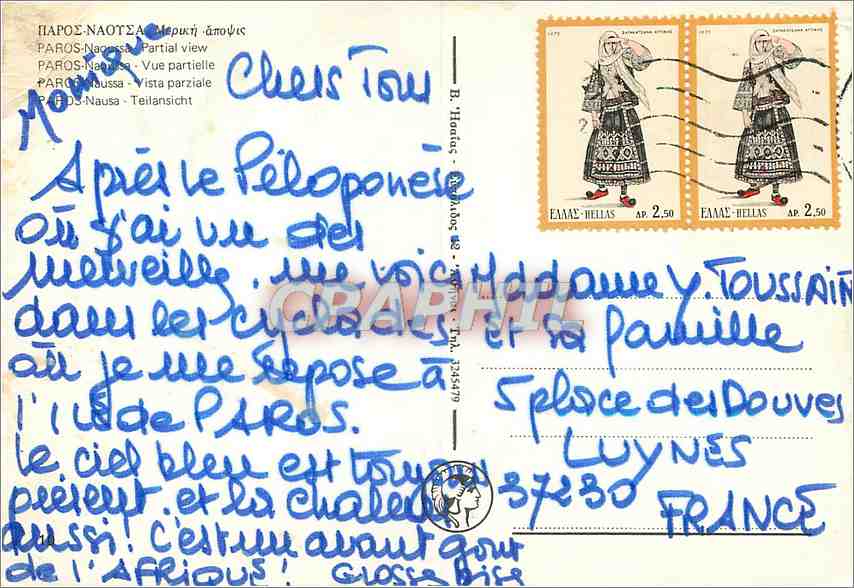 ΠΑΡΟΣ-ΝΑΟΥΣΑ. Μερική άποψις
PAROS-Naoussa - Partial view
PAROS-Naoussa - Vue partielle
PAROS-Naussa - Vista parziale
PAROS-Nausa - Teilansicht
Monique
Chers Tous
Après le Péloponèse
où j'ai vu des
merveilles, me voici
dans les cyclades
où je me repose à
l'île de PAROS.
Le ciel bleu est toujours
présent et la chaleur
aussi! C'est un avant goût
de l'AFRIQUE! Grosse Bise
10
1975
ΕΛΛΑΣ-HELLAS ΔΡ. 2,50
1975
ΕΛΛΑΣ-HELLAS ΔΡ. 2,50
Τηλ. 3245479
CPAPHIL
Maddame Y. TOUSSAIN
et sa famille
5 place des Douves
LUYNES
37230
FRANCE